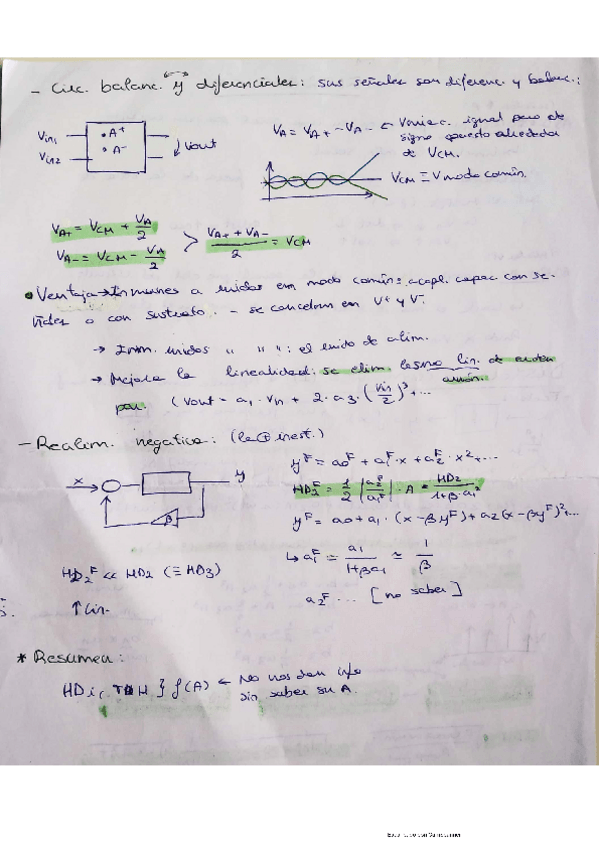 - Circ. balanc. y diferenciales: sus señales son diferenc. y balanc.:
Vin1
Vin2
• A+
• A-
↓ Vout
VA = VA+ - VA- ← Variac. igual pero de
signo opuesto alrededor
de VCM.
VCM ≡ V modo común.
VA+ = VCM + VA/2
VA- = VCM - VA/2
> (VA+ + VA-)/2 = VCM
• Ventaja → Inmunes a ruidos en modo común: acopl. capac. con se-
ñales o con sustrato. - se cancelan en V+ y V-.
→ Inm. ruidos " " ": el ruido de alim.
→ Mejora la linealidad: se elim. los mo lin. de orden
armón.
par. (Vout = a1 · Vin + 2 · a3 · (Vin/2)^3 + ...
- Realim. negativa: (la ⊕ inest.)
x
y
β
y^F = a0^F + a1^F · x + a2^F · x^2 + ...
HD2^F = 1/2 |a2^F/a1^F| · A = HD2/(1+β·a1)^2
y^F = a0 + a1 · (x - βy^F) + a2(x - βy^F)^2 + ...
↳ a1^F = a1/(1+βa1) ≃ 1/β
HD2^F << HD2 (≡ HD3)
a2^F ... [no saber]
↑ Lin.
* Resumen:
HDi, THD } f(A) ← No nos dan info
sin saber su A.